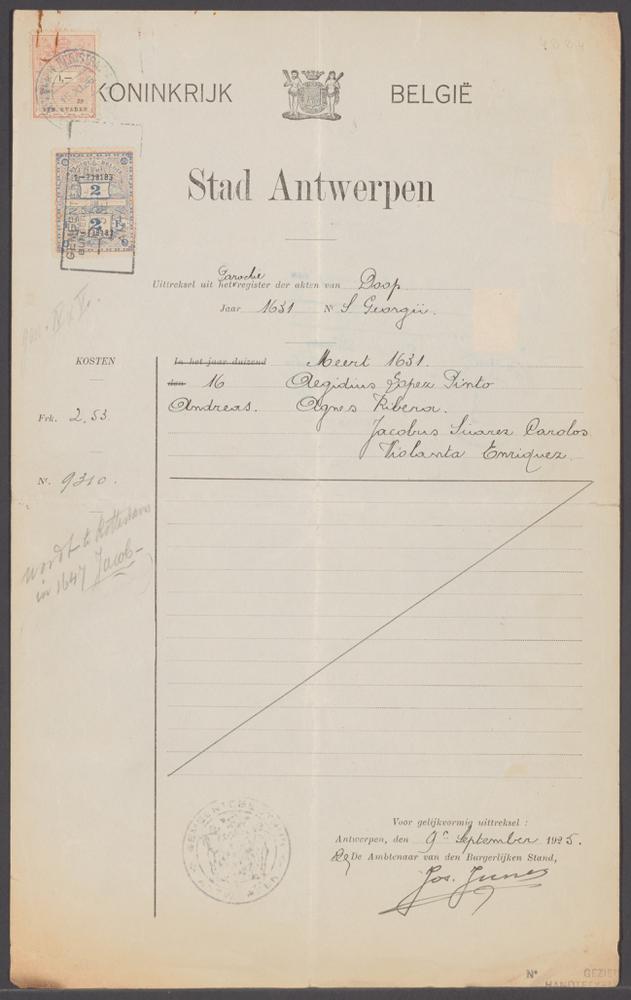 1.—
KONINKRIJK BELGIË
2
2
Stad Antwerpen
Parochie
Uittreksel uit het register der akten van Doop
Jaar 1631 Nr S Georgii.
KOSTEN
In het jaar duizend Meert 1631.
den 16 Aegidius Lopez Pinto
Andreas. Agnes Ribera.
Frk. 2,53
Jacobus Suarez Carolos
Violanta Enriquez.
Nr. 9310.
wordt te Rotterdam
in 1647 Jacob
Voor gelijkvormig uittreksel :
Antwerpen, den 9e September 1925.
De Ambtenaar van den Burgerlijken Stand,
N°